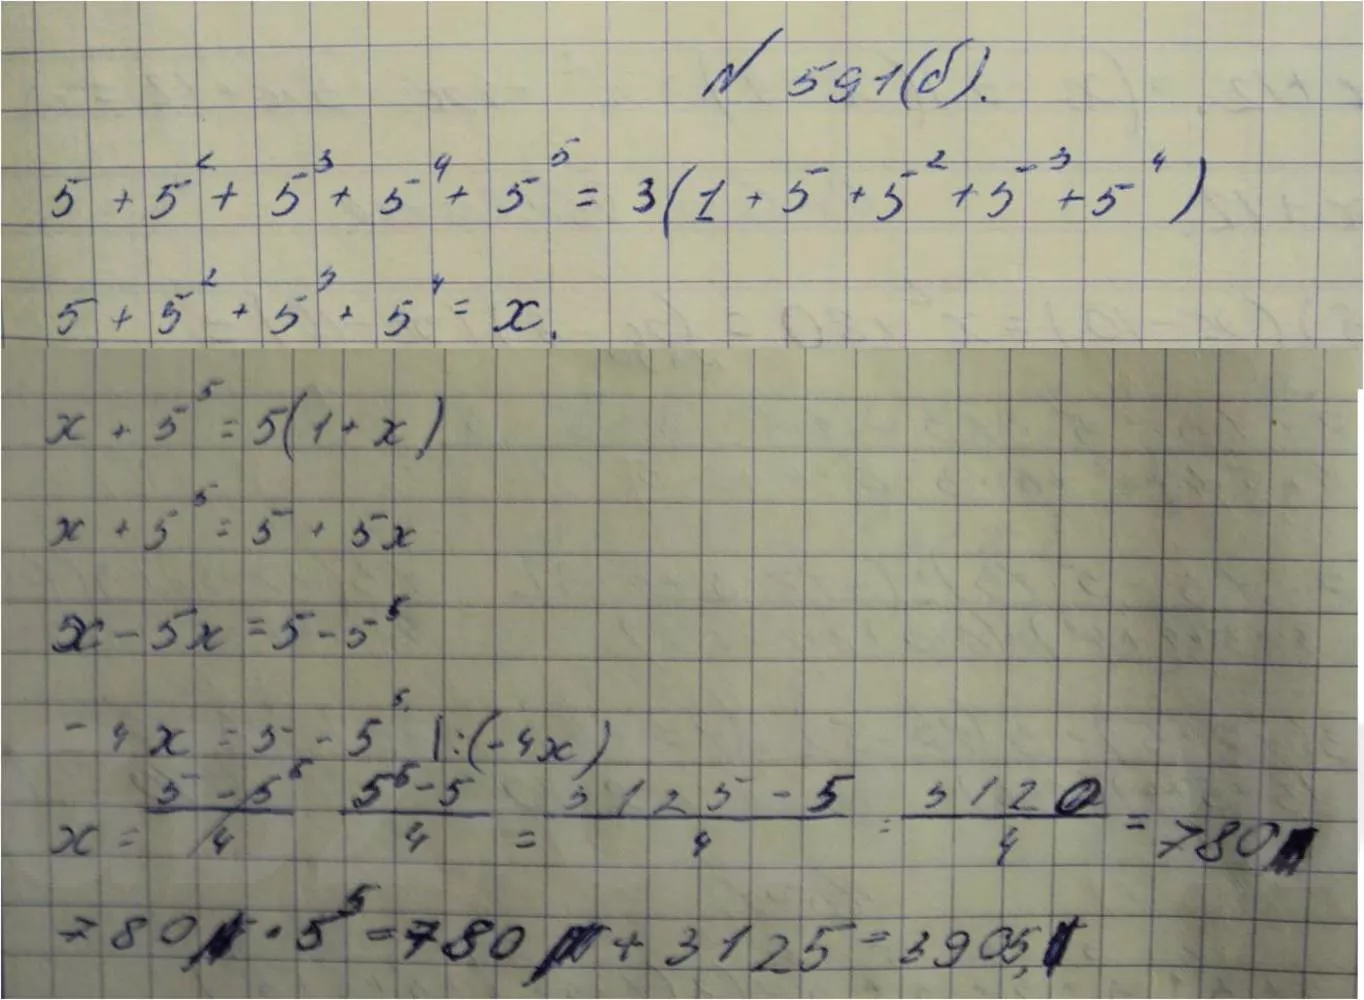 № 591(б).
5 + 5² + 5³ + 5⁴ + 5⁵ = 3(1 + 5 + 5² + 5³ + 5⁴)
5 + 5² + 5³ + 5⁴ = x.
x + 5⁵ = 5(1 + x)
x + 5⁵ = 5 + 5x
x - 5x = 5 - 5⁵
-4x = 5 - 5⁵ |:(-4x)
x = (5⁵ - 5)/4 = (3125 - 5)/4 = 3120/4 = 780
780 + 5⁵ = 780 + 3125 = 3905